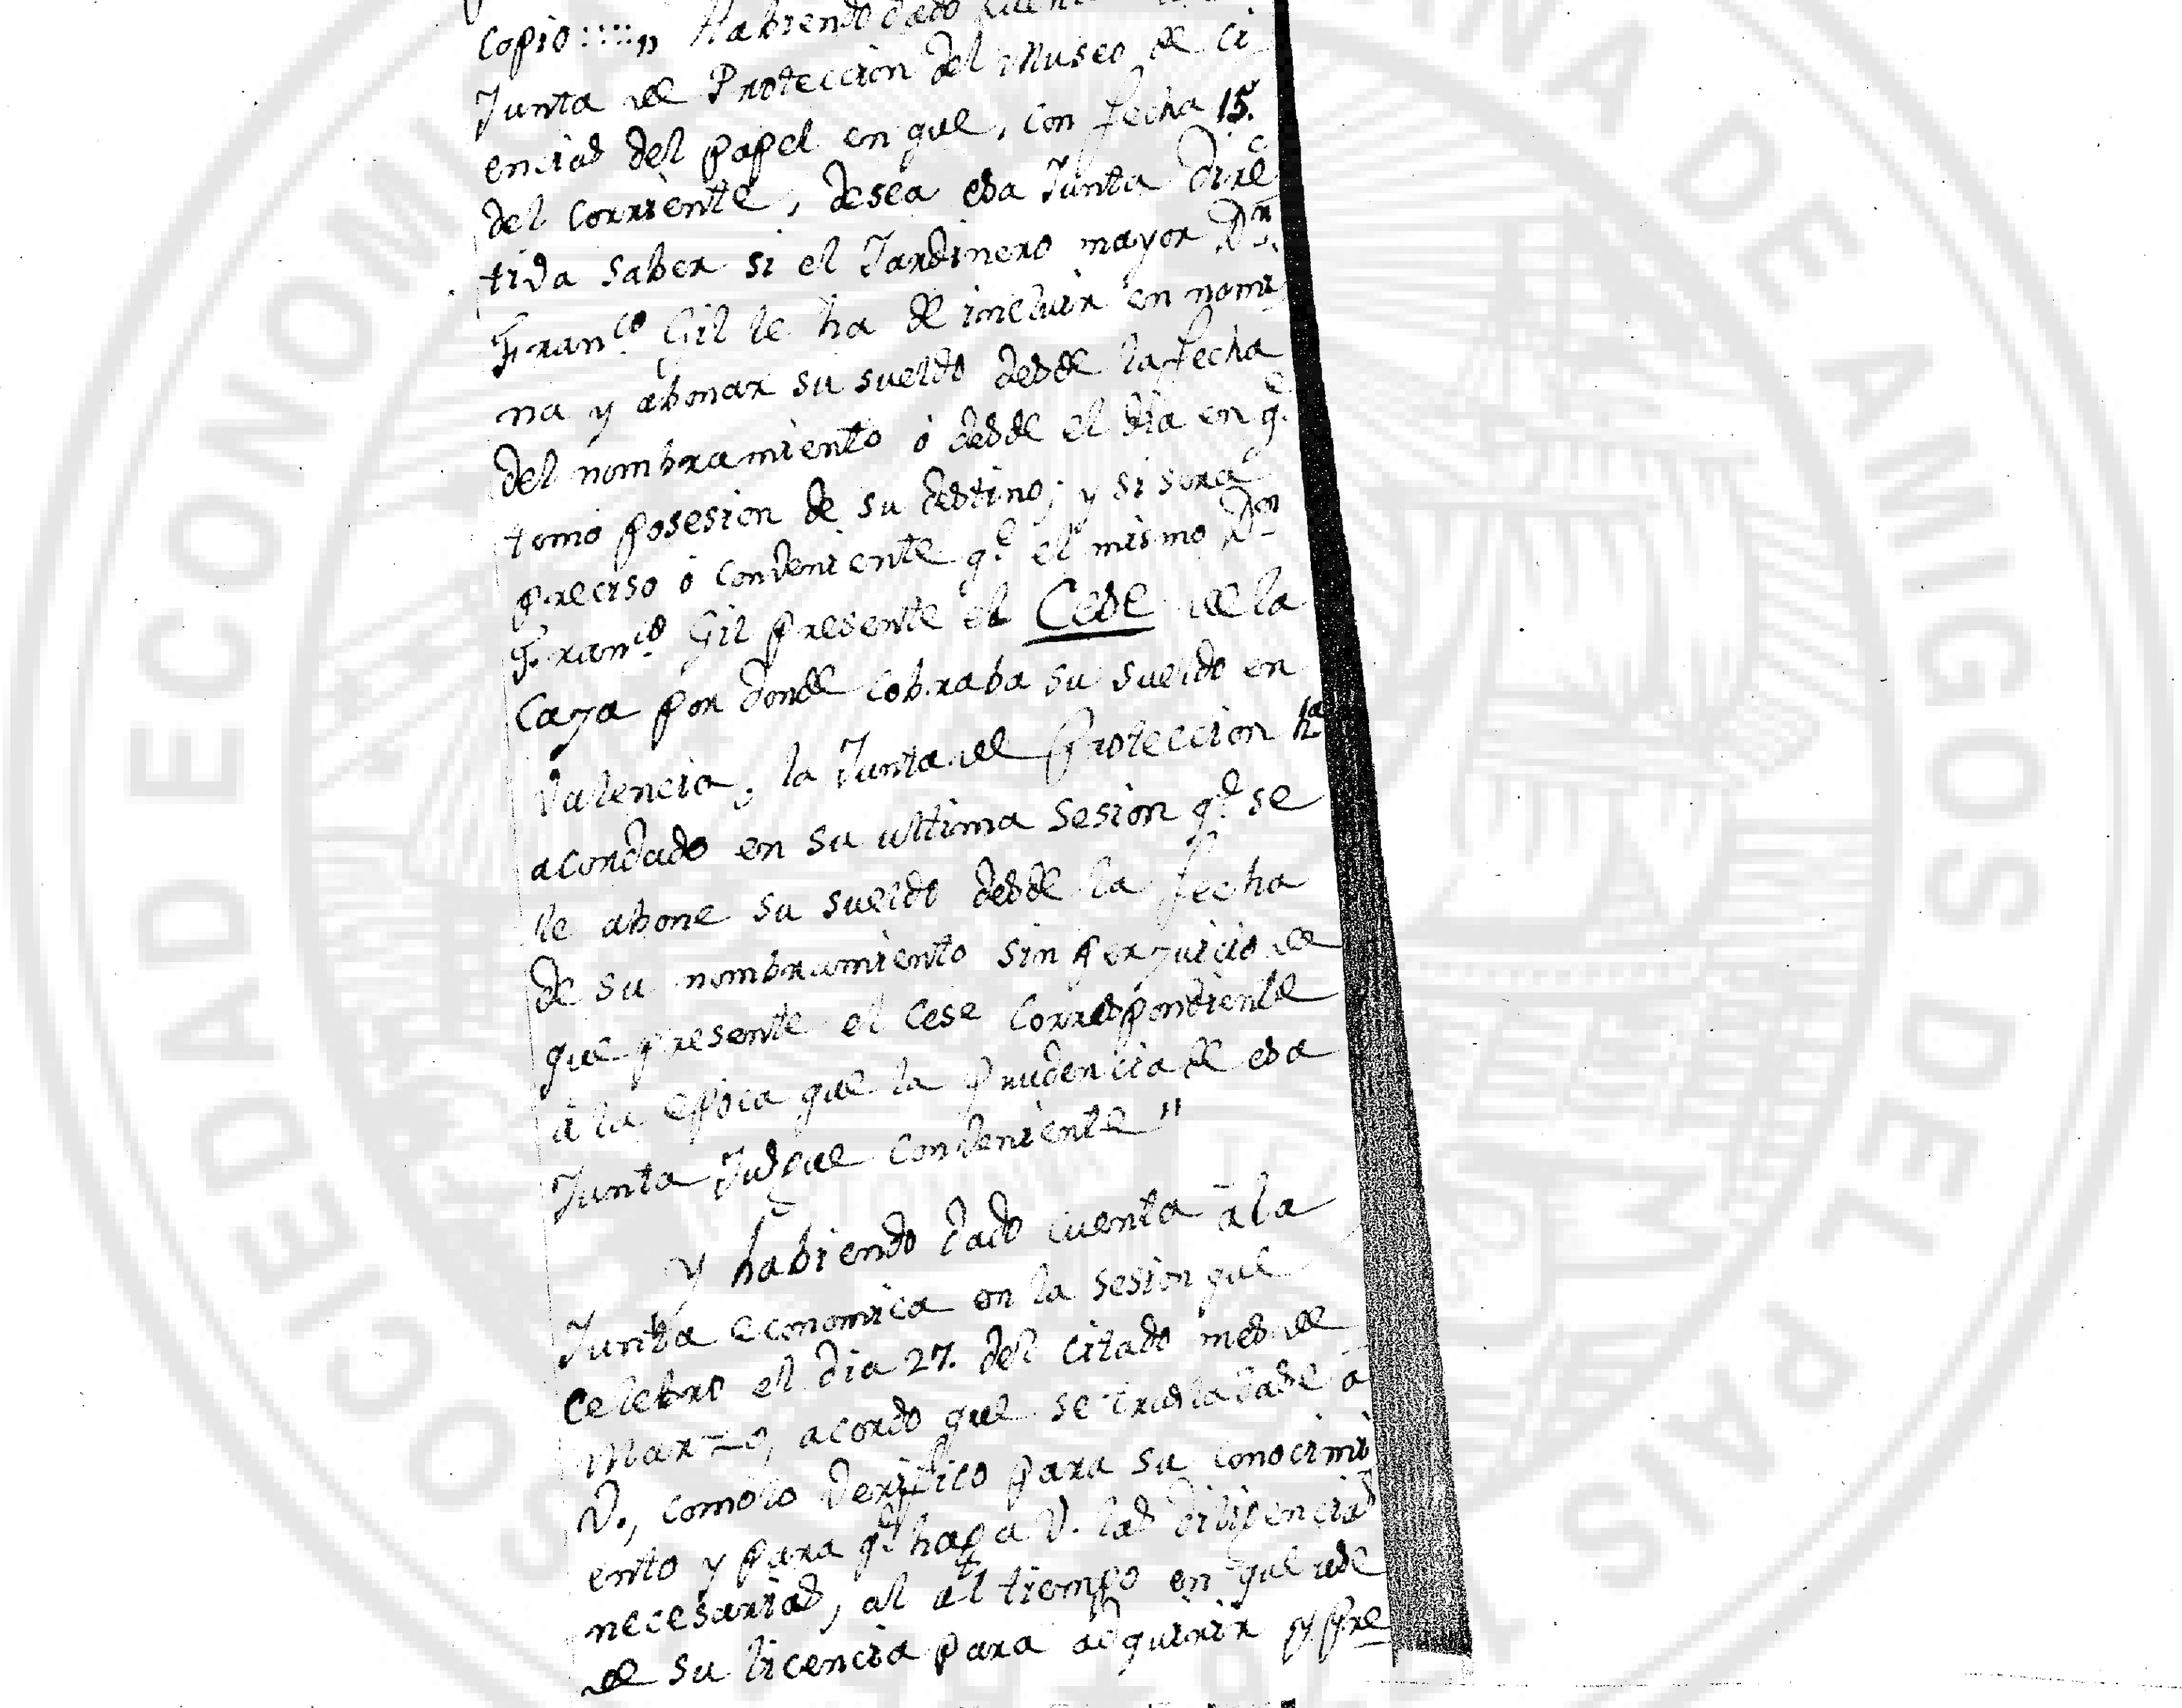 copio::::„ Habiendo dado
Junta de Proteccion del Museo de Ci
encias del papel en que, con fecha 15.
del corriente, desea esa Junta direc
tiva saber si el Jardinero mayor Dn.
Franco. Gil le ha de incluir en nomi
na y abonar su sueldo desde la fecha
del nombramiento ó desde el dia en qe.
tomó posesion de su destino; y si será
preciso ó conveniente qe. el mismo Dn
Franco. Gil presente el Cese de la
Caja por donde cobraba su sueldo en
Valencia, la Junta de Proteccion ha
acordado en su ultima sesion qe. se
le abone su sueldo desde la fecha
de su nombramiento sin perjuicio de
que presente el cese correspondiente
á la epoca que la prudencia de esa
Junta Jusgue conveniente"
Y habiendo dado cuenta á la
Junta economica en la sesion que
celebro el dia 27. del citado mes de
Marzo, acordo que se trasladase á
V., como lo verifico para su conocimi
ento y para qe. haga V. las diligencias
necesarias, al tiempo en que use
de su licencia para adquirir y pre
SOCIEDAD ECONOMI NA DE AMIGOS DEL PAIS